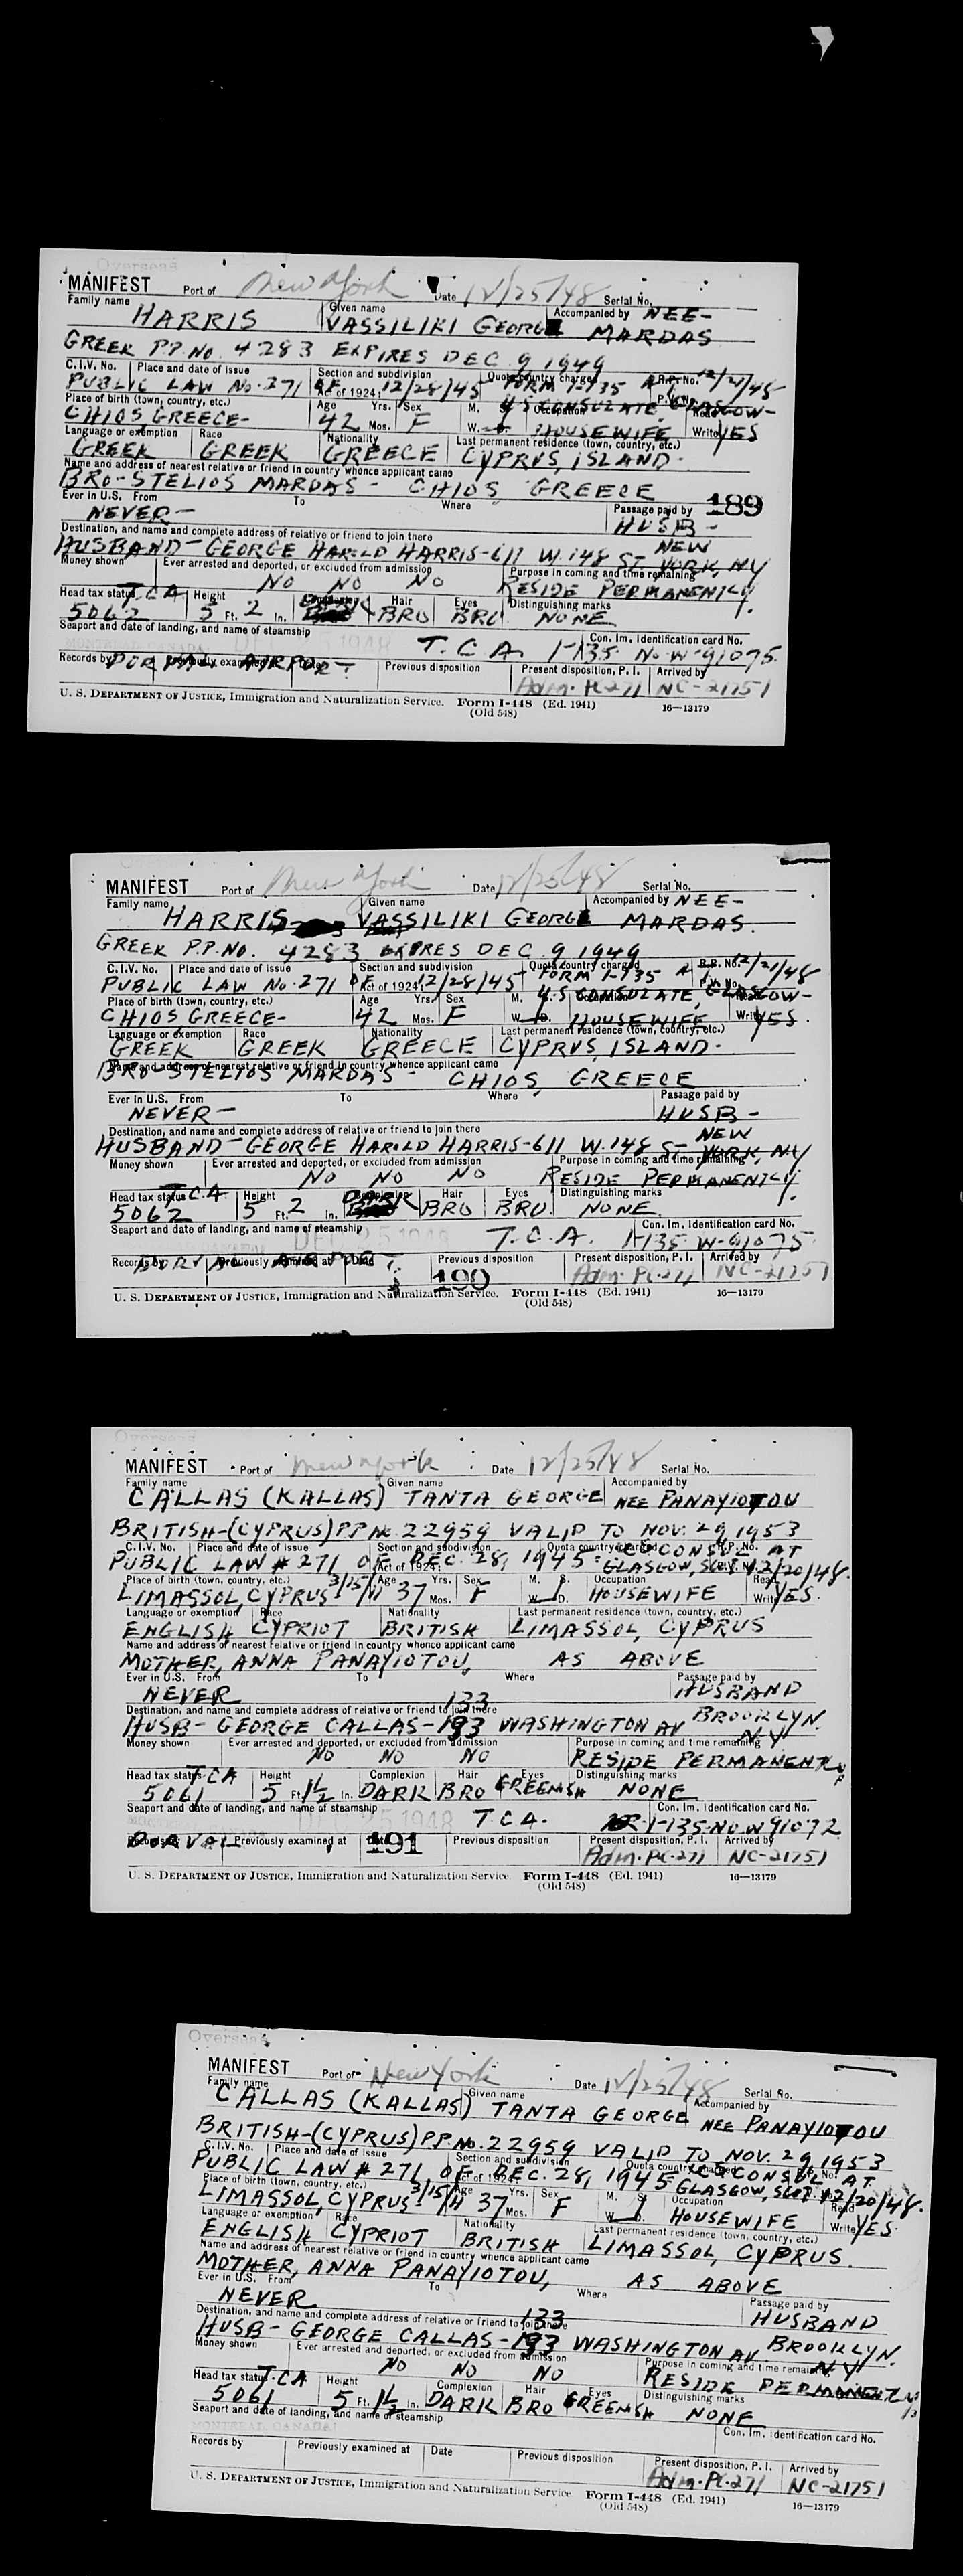 Overseas
MANIFEST Port of New York Date 12/25/48 Serial No.
Family name Given name Accompanied by NEE-
HARRIS VASSILIKI GEORGE MARDAS
GREEK P.P. No. 4283 EXPIRES DEC 9 1949
C.I.V. No. Place and date of issue Section and subdivision Quota country charged R.P. No. 12/21/48
PUBLIC LAW No. 271 OF Act of 1924, 12/28/45 FORM I-135 AT P.V. No.
Place of birth (town, country, etc.) Age Yrs. Sex M. S. U S CONSULATE, GLASGOW- Occupation Read
CHIOS GREECE- 42 Mos. F W. D. HOUSEWIFE Write YES
Language or exemption Race Nationality Last permanent residence (town, country, etc.)
GREEK GREEK GREECE CYPRUS, ISLAND-
Name and address of nearest relative or friend in country whence applicant came
BRO-STELIOS MARDAS- CHIOS, GREECE
Ever in U.S. From To Where Passage paid by 189
NEVER- HUSB-
Destination, and name and complete address of relative or friend to join there NEW
HUSBAND-GEORGE HAROLD HARRIS-611 W. 148 ST. YORK, NY
Money shown Ever arrested and deported, or excluded from admission Purpose in coming and time remaining
NO NO NO RESIDE PERMANENTLY.
Head tax status T.C.A Height Complexion Hair Eyes Distinguishing marks
5062 5 Ft. 2 In. BRO BRO NONE
Seaport and date of landing, and name of steamship Con. Im. Identification card No.
MONTREAL CANADA DEC 25 1948 T.C.A. I-135 No W-91075
Records by Previously examined at Date Previous disposition Present disposition, P. I. Arrived by
DORVAL AIRPORT. Adm. PL-271 NC-21751
U. S. DEPARTMENT OF JUSTICE, Immigration and Naturalization Service. Form I-448 (Ed. 1941) 16—13179
(Old 548)
MANIFEST Port of New York Date 12/25/48 Serial No.
Family name Given name Accompanied by NEE-
HARRIS VASSILIKI GEORGE MARDAS.
GREEK P.P. NO. 4283 EXPIRES DEC 9 1949
C.I.V. No. Place and date of issue Section and subdivision Quota country charged R.P. No. 12/21/48
PUBLIC LAW No. 271 OF Act of 1924, 12/28/45 FORM I-135 AT P.V. No.
Place of birth (town, country, etc.) Age Yrs. Sex M. S. U.S CONSULATE, GLASGOW- Occupation Read
CHIOS GREECE- 42 Mos. F W. D. HOUSEWIFE Write YES
Language or exemption Race Nationality Last permanent residence (town, country, etc.)
GREEK GREEK GREECE CYPRUS, ISLAND-
Name and address of nearest relative or friend in country whence applicant came
BRO-STELIOS MARDAS- CHIOS, GREECE
Ever in U.S. From To Where Passage paid by
NEVER- HUSB-
Destination, and name and complete address of relative or friend to join there NEW
HUSBAND-GEORGE HAROLD HARRIS-611 W. 148 ST YORK, NY
Money shown Ever arrested and deported, or excluded from admission Purpose in coming and time remaining
NO NO NO RESIDE PERMANENTLY.
Head tax status T.C.A Height Complexion Hair Eyes Distinguishing marks
5062 5 Ft. 2 In. DARK BRO BRO. NONE.
Seaport and date of landing, and name of steamship Con. Im. Identification card No.
DEC 25 1948 T.C.A. I-135 W-91075
Records by Previously examined at Date Previous disposition Present disposition, P. I. Arrived by
DORVAL AIRPORT 190 Adm. PL-271 NC-21751
U. S. DEPARTMENT OF JUSTICE, Immigration and Naturalization Service. Form I-448 (Ed. 1941) 16—13179
(Old 548)
Overseas
MANIFEST Port of New York Date 12/25/48 Serial No.
Family name Given name Accompanied by
CALLAS (KALLAS) TANTA GEORGE NEE PANAYIOTOU
BRITISH-(CYPRUS) PP No. 22959 VALID TO NOV. 29 1953
C.I.V. No. Place and date of issue Section and subdivision Quota country charged US CONSUL AT R.P. No.
PUBLIC LAW # 271 OF Act of 1924, DEC. 28, 1945- GLASGOW, SCOT. P.V. No. 12/20/48.
Place of birth (town, country, etc.) 3/15/11 Age Yrs. Sex M. S. Occupation Read
LIMASSOL, CYPRUS 37 Mos. F W. D. HOUSEWIFE Write YES.
Language or exemption Race Nationality Last permanent residence (town, country, etc.)
ENGLISH CYPRIOT BRITISH LIMASSOL, CYPRUS
Name and address of nearest relative or friend in country whence applicant came
MOTHER, ANNA PANAYIOTOU, AS ABOVE
Ever in U.S. From To Where Passage paid by
NEVER HUSBAND
Destination, and name and complete address of relative or friend to join there 133 BROOKLYN.
HUSB- GEORGE CALLAS-193 WASHINGTON AV NY
Money shown Ever arrested and deported, or excluded from admission Purpose in coming and time remaining
NO NO NO RESIDE PERMANENTLY
Head tax status T.C.A Height Complexion Hair Eyes Distinguishing marks
5061 5 Ft. 1½ In. DARK BRO GREENISH NONE
Seaport and date of landing, and name of steamship Con. Im. Identification card No.
DEC 25 1948 T.C.A. I-135-NO W 91072
Records by Previously examined at Date Previous disposition Present disposition, P. I. Arrived by
DORVAL 191 Adm. PL-271 NC-21751
U. S. DEPARTMENT OF JUSTICE, Immigration and Naturalization Service. Form I-448 (Ed. 1941) 16—13179
(Old 548)
Overseas
MANIFEST Port of New York Date 12/25/48 Serial No.
Family name Given name Accompanied by
CALLAS (KALLAS) TANTA GEORGE NEE PANAYIOTOU
BRITISH-(CYPRUS) PP No. 22959 VALID TO NOV. 29 1953
C.I.V. No. Place and date of issue Section and subdivision Quota country charged US CONSUL AT R.P. No.
PUBLIC LAW # 271, OF Act of 1924, DEC. 28, 1945 GLASGOW, SCOT. 12/20/48.
Place of birth (town, country, etc.) 3/15/11 Age Yrs. Sex M. S. Occupation Read
LIMASSOL, CYPRUS- 37 Mos. F W. D. HOUSEWIFE Write YES.
Language or exemption Race Nationality Last permanent residence (town, country, etc.)
ENGLISH CYPRIOT BRITISH LIMASSOL, CYPRUS.
Name and address of nearest relative or friend in country whence applicant came
MOTHER, ANNA PANAYIOTOU, AS ABOVE
Ever in U.S. From To Where Passage paid by
NEVER HUSBAND
Destination, and name and complete address of relative or friend to join there 133 BROOKLYN.
HUSB- GEORGE CALLAS-193 WASHINGTON AV. NY
Money shown Ever arrested and deported, or excluded from admission Purpose in coming and time remaining
NO NO NO RESIDE PERMANENTLY
Head tax status T.C.A Height Complexion Hair Eyes Distinguishing marks
5061 5 Ft. 1½ In. DARK BRO GREENISH NONE
Seaport and date of landing, and name of steamship Con. Im. Identification card No.
MONTREAL CANADA
Records by Previously examined at Date Previous disposition Present disposition, P. I. Arrived by
Adm. PL-271 NC-21751
U. S. DEPARTMENT OF JUSTICE, Immigration and Naturalization Service. Form I-448 (Ed. 1941) 16—13179
(Old 548)